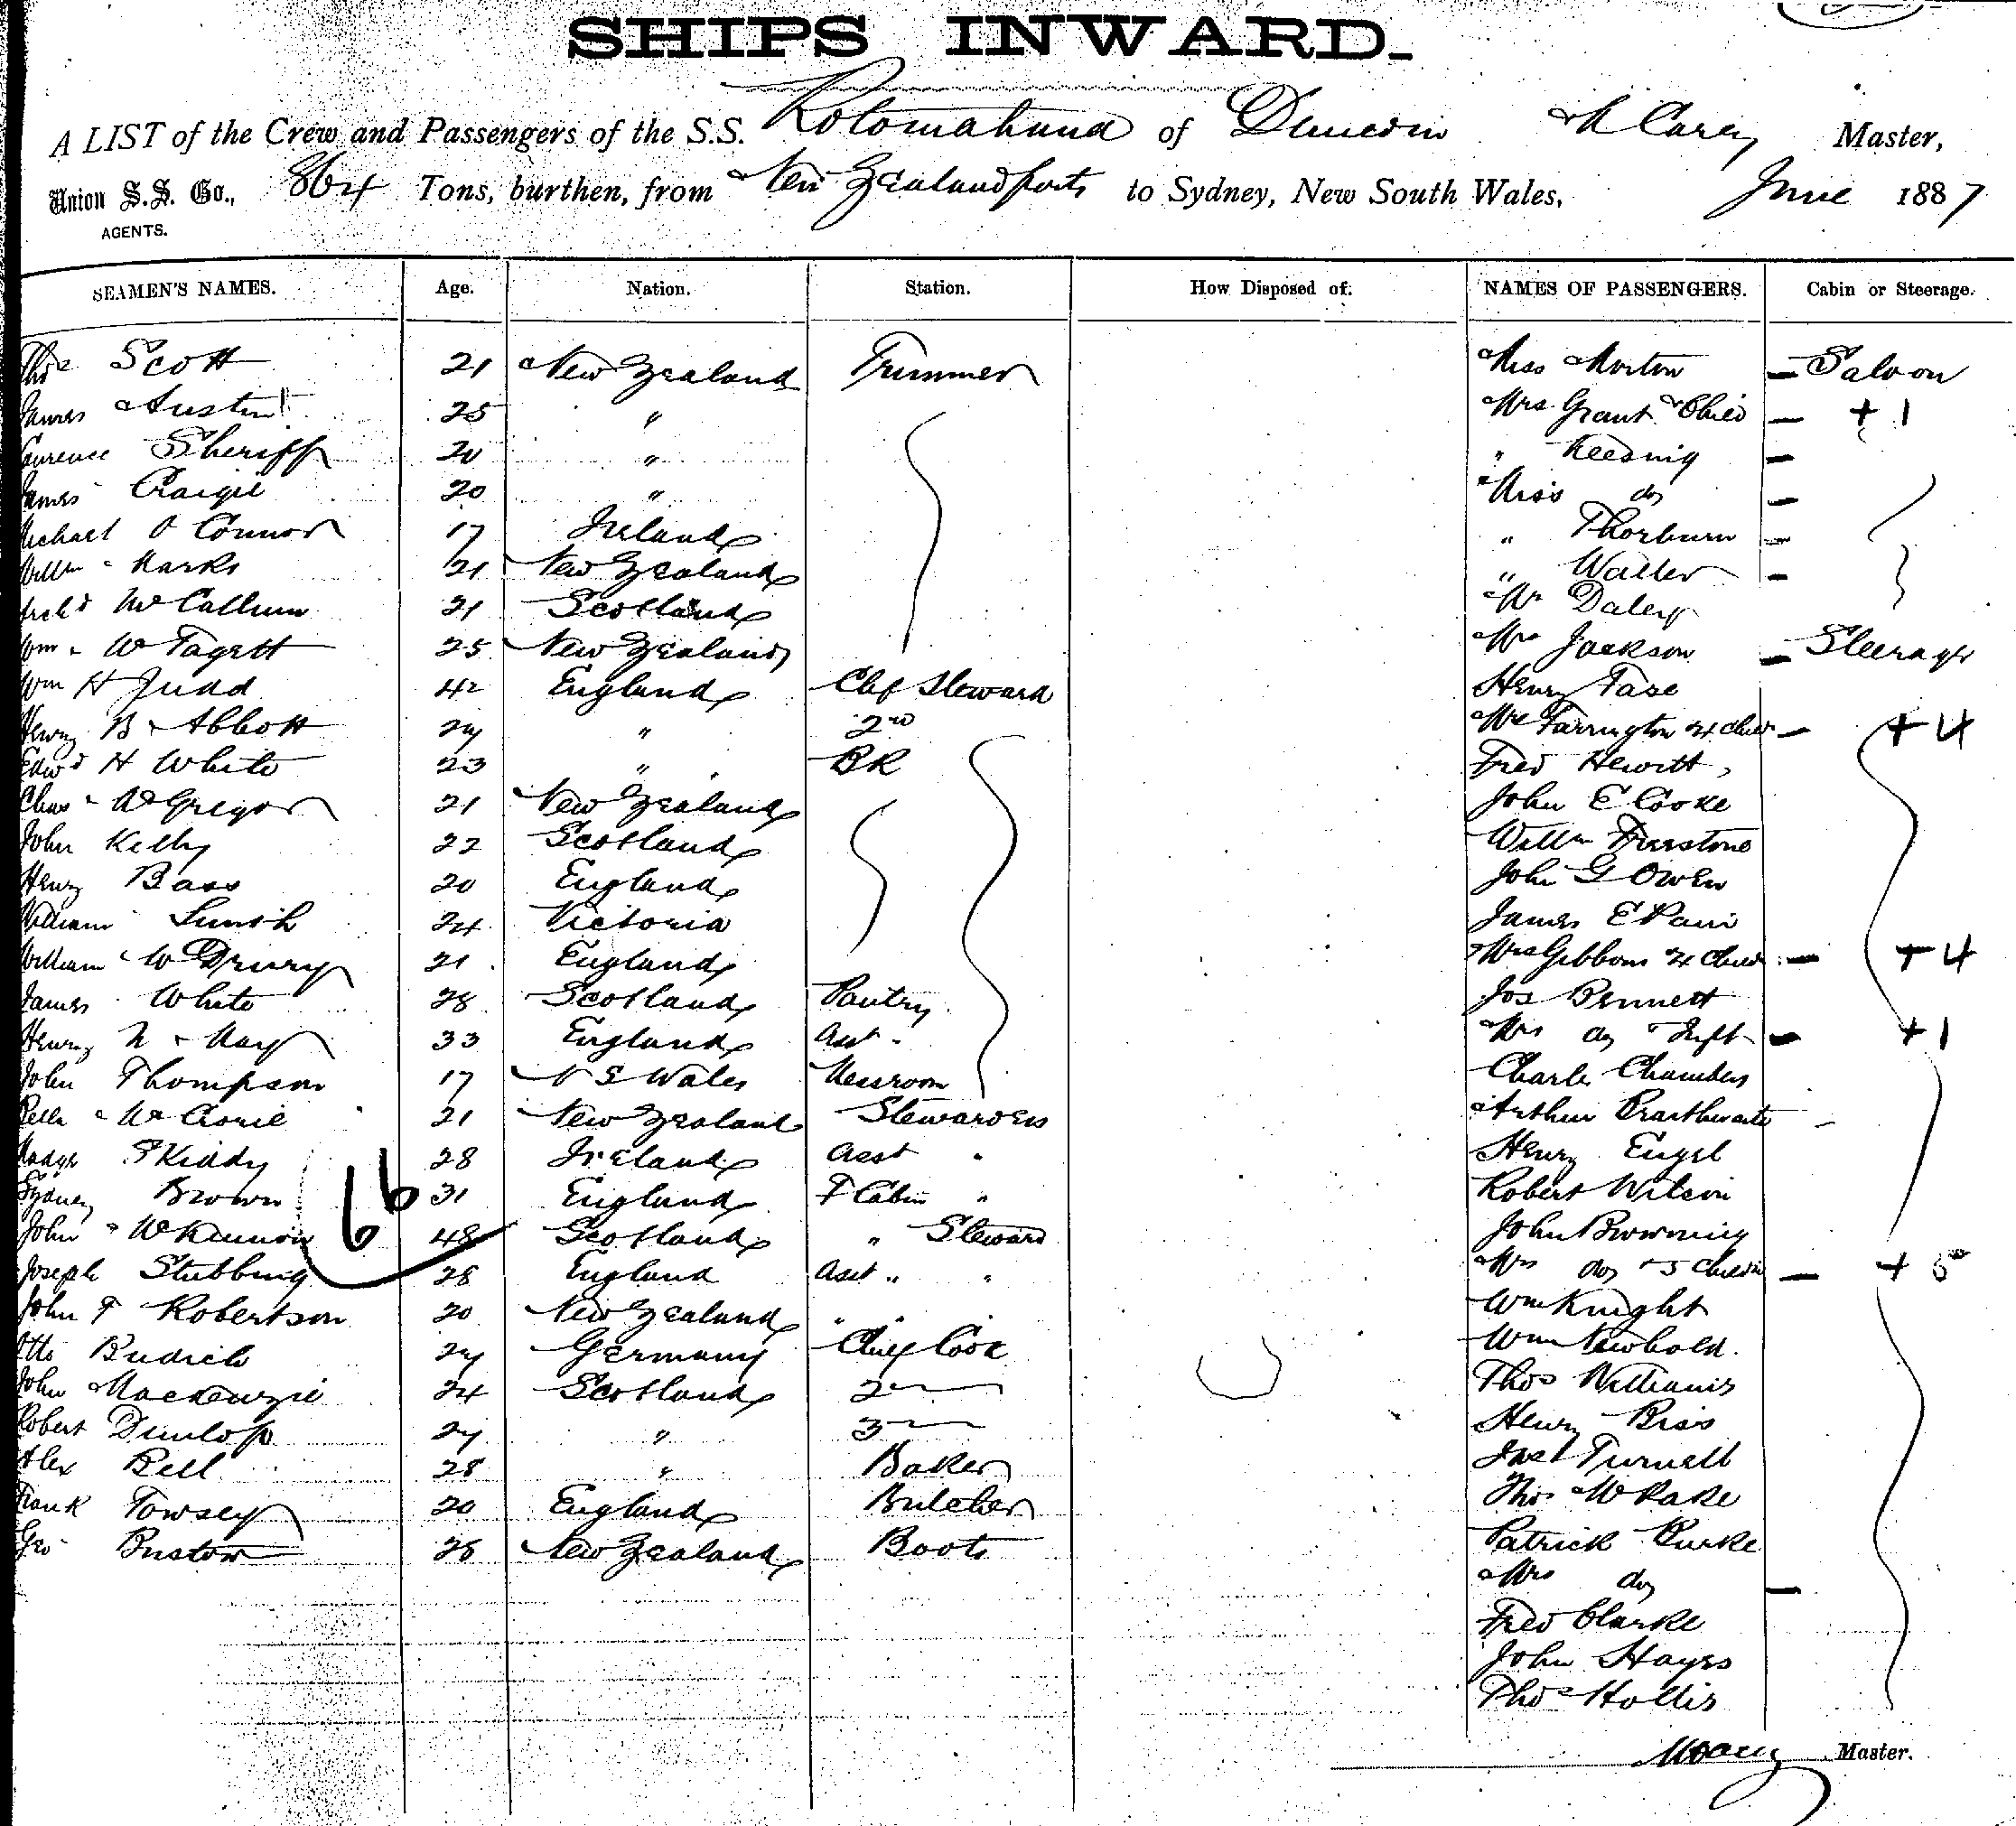 SHIPS INWARD.
A LIST of the Crew and Passengers of the S.S. Rotomahana of Dunedin M Carey Master,
Union S.S. Co., 864 Tons, burthen, from New Zealand ports to Sydney, New South Wales, June 1887
AGENTS.
SEAMEN'S NAMES. Age. Nation. Station. How Disposed of. NAMES OF PASSENGERS. Cabin or Steerage.
Thos Scott 21 New Zealand Trimmer Miss Morton Saloon
James Austin 25 " Mrs Grant & Child + 1
Laurence Sheriff 20 " " Keesing
James Craigie 20 " Miss do
Michael O Connor 17 Ireland " Thorburn
Willm Marks 21 New Zealand " Waller
Archd McCallum 21 Scotland Mr Daley
Wm W Fagett 25 New Zealand Mrs Jackson Steerage
Wm H Judd 42 England Chf Steward Henry Tase
Henry B Abbott 24 " 2nd Mrs Farrington 4 Child + 4
Edwd H White 23 " BR Fred Hewitt
Chas McGregor 21 New Zealand John E Cooke
John Kelly 22 Scotland Willm Freestone
John G Owen
Henry Bass 20 England
William 24 Victoria James E
William W Drury 21 England Mrs Gibbons 4 Child + 4
James White 28 Scotland Pantry Jos Bennett
Henry N May 33 England Asst Mrs do & Inft + 1
John Thompson 17 N S Wales Messroom Charles Chambers
21 New Zealand Stewardess Arthur Braithwaite
Madge Skiddy 28 Ireland Asst " Henry Engel
Sydney Brown 16 31 England F Cabin " Robert Wilson
John McKinnon 48 Scotland " Steward John Browning
Joseph Stubbing 28 England Asst " " Mrs do & 5 Children + 5
John F Robertson 20 New Zealand " " Wm Knight
Otto Budich 24 Germany Chief Cook Wm Newbold.
John Mackenzie 24 Scotland 2 Thos Williams
Robert Dunlop 24 " 3 Henry Biss
Alex Bell 28 " Baker Turnell
Frank Towsey 20 England Butcher Thos
Geo Buston 28 New Zealand Boots Patrick Burke
Mrs do
Fred Clarke
John Hayes
Thos Hollis
M Carey Master.